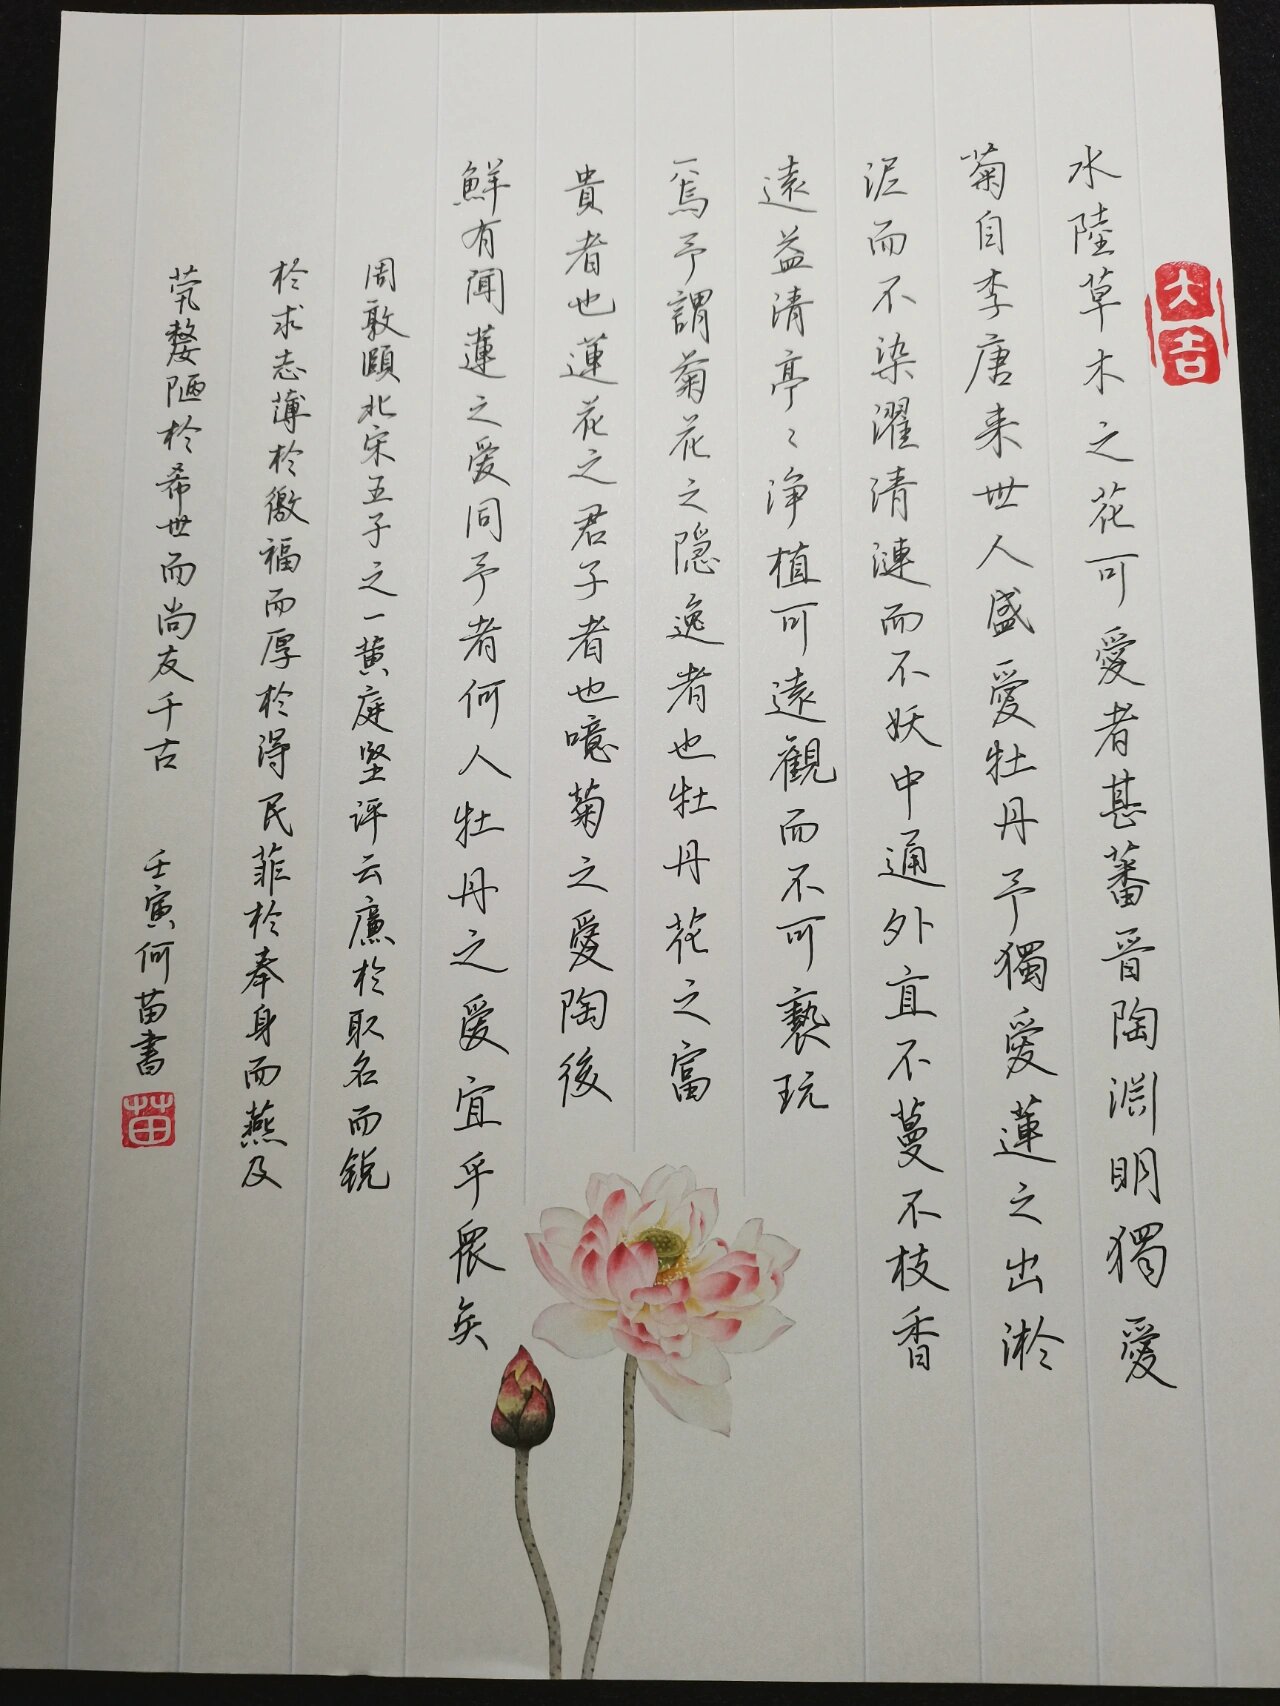 大吉
水陸草木之花可愛者甚蕃晋陶淵明獨愛
菊自李唐来世人盛愛牡丹予獨愛蓮之出淤
泥而不染濯清漣而不妖中通外直不蔓不枝香
遠益清亭〻净植可遠觀而不可褻玩
焉予謂菊花之隠逸者也牡丹花之富
貴者也蓮花之君子者也噫菊之愛陶後
鮮有聞蓮之爱同予者何人牡丹之爱宜乎衆矣
周敦頤北宋五子之一黄庭堅评云廉於取名而锐
於求志薄於徼福而厚於得民菲於奉身而燕及
茕嫠陋於希世而尚友千古
壬寅何苗書
苗